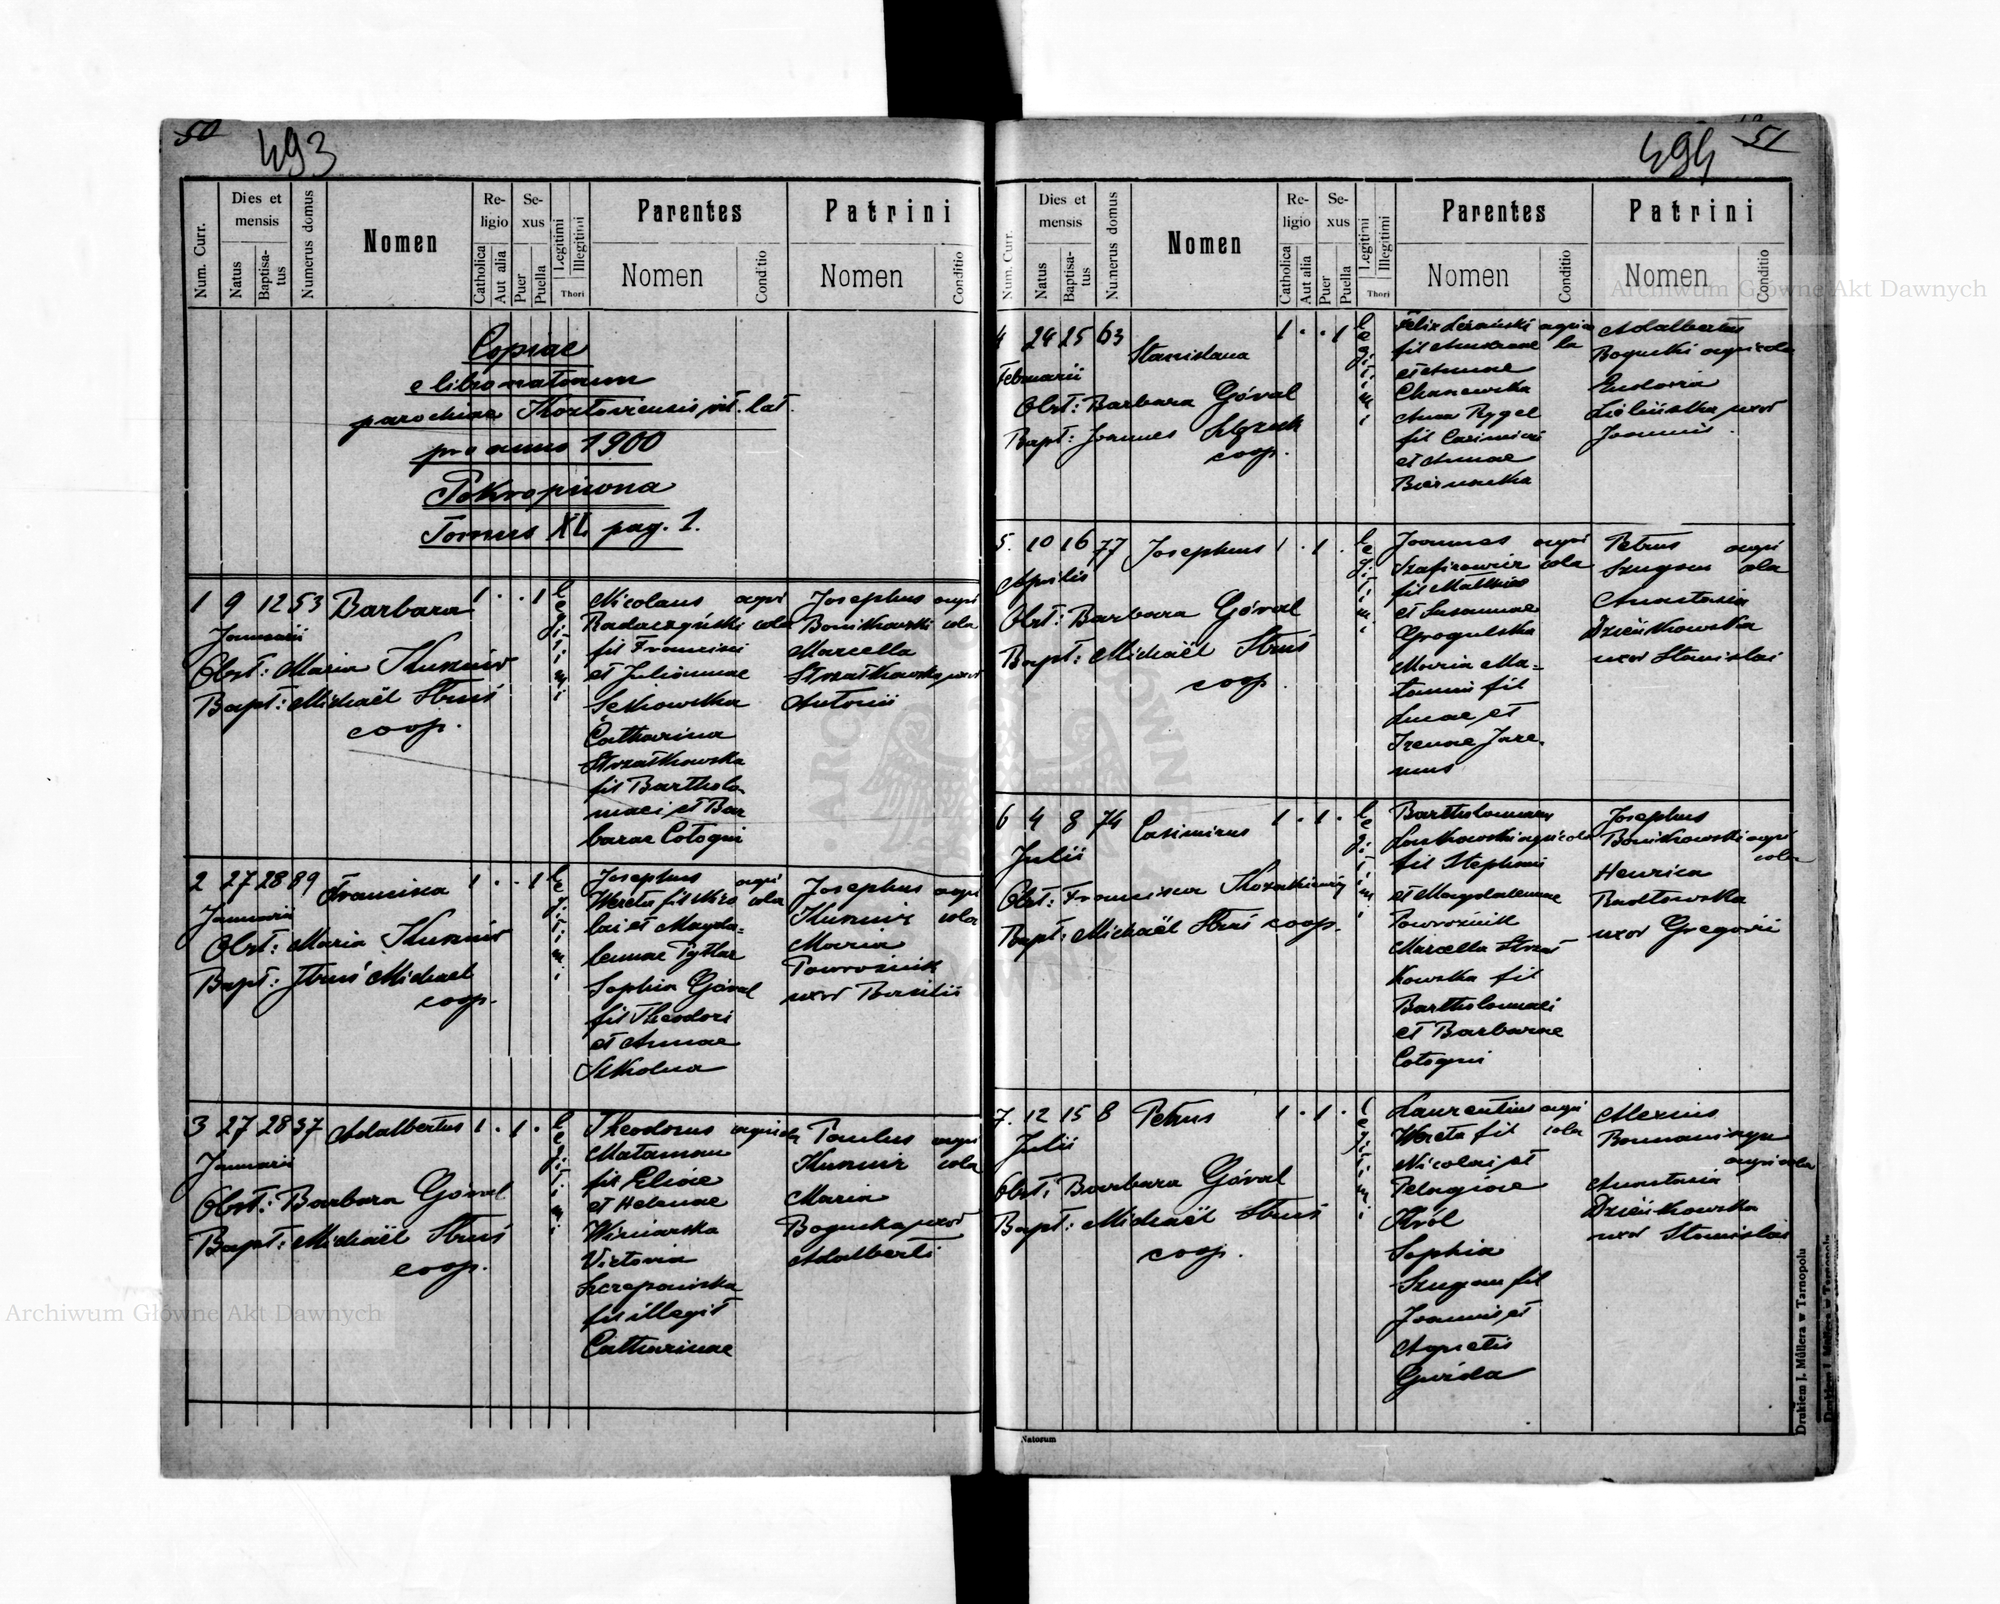 50
493
Num. Curr.
Dies et mensis
Natus
Baptisatus
Numerus domus
Nomen
Religio
Catholica
Aut alia
Sexus
Puer
Puella
Legitimi
Illegitimi
Thori
Parentes
Nomen
Conditio
Patrini
Nomen
Conditio
Copiae
e libro natorum
parochiae Kozłoviensis rit. lat.
pro anno 1900
Pokropiwna
Tomus XI. pag. 1.
1 9 12 53 Barbara 1 . . 1 legitimi
Januarii
Obst: Maria Kumiw
Bapt: Michaël Struś
coop.
Nicolaus agri
Radaczyński cola
fil Francisci
et Juliannae
Sethowska
Catharina
Strzałkowska
fil Bartholo-
maei et Bar
barae Cologni
Josephus agri
Bonikowski cola
Marcella
Strzałkowska uxor
Antonii
2 27 28 89 Francisca 1 . . 1 legitimi
Januarii
Obst: Maria Kumiw
Bapt: Struś Michael
coop.
Josephus agri
Wereta fil Nico cola
lai et Magda-
lenae Tytlar
Sophia Góral
fil Theodori
et Annae
Szkolna
Josephus agri
cola
Maria
Powroźnik
uxor Basilii
3 27 28 37 Adalbertus 1 . 1 . legitimi
Januarii
Obst: Barbara Góral
Bapt: Michaël Struś
coop.
Theodorus agricola
Mataman
fil Eliae
et Helenae
Winiarska
Victoria
Szczepańska
fil illegit
Catharinae
Paulus agri
cola
Maria
Bogucka uxor
Adalberti
51
494
Num. Curr.
Dies et mensis
Natus
Baptisatus
Numerus domus
Nomen
Religio
Catholica
Aut alia
Sexus
Puer
Puella
Legitimi
Illegitimi
Thori
Parentes
Nomen
Conditio
Patrini
Nomen
Conditio
4 24 25 63 Stanislava 1 . . 1 legitimi
Februarii
Obst: Barbara Góral
Bapt: Joannes
coop.
Felix agrico
fil Andreae la
et Annae
Chanewska
Anna Rygel
fil Casimiri
et Annae
Biernacka
Adalbertus
Bogucki agricola
Eudoxia
Zielińska uxor
Joannis.
5. 10 16 77 Josephus 1 . 1 . legitimi
Aprilis
Obst: Barbara Góral
Bapt: Michaël Struś
coop.
Joannes agri
Szafirowicz cola
fil Mathiae
et Susannae
Grogulska
Maria Ma-
taman fil
Lucae et
Irenae Jare-
mus
Petrus agri
Szugan cola
Anastasia
Dzieńkowska
uxor Stanislai
6 4 8 74 Casimirus 1 . 1 . legitimi
Julii
Obst: Francisca
Bapt: Michaël Struś coop.
Bartholomaeus
agricola
fil Stephani
et Magdalenae
Powroźnik
Marcella Strzał
kowska fil
Bartholomaei
et Barbarae
Cologni
Josephus
Bonikowski agri
cola
Henrica
Rudkowska
uxor Gregorii
7. 12 15 8 Petrus 1 . 1 . legitimi
Julii
Obst: Barbara Góral
Bapt: Michaël Struś
coop.
Laurentius agri
Wereta fil cola
Nicolai et
Pelagiae
Król
Sophia
Szugan fil
Joannis et
Agnetis
Gwizda
Alexius
agricola
Anastasia
Dzieńkowska
uxor Stanislai
Natorum
Drukiem J. Müllera w Tarnopolu
Archiwum Główne Akt Dawnych
Archiwum Główne Akt Dawnych